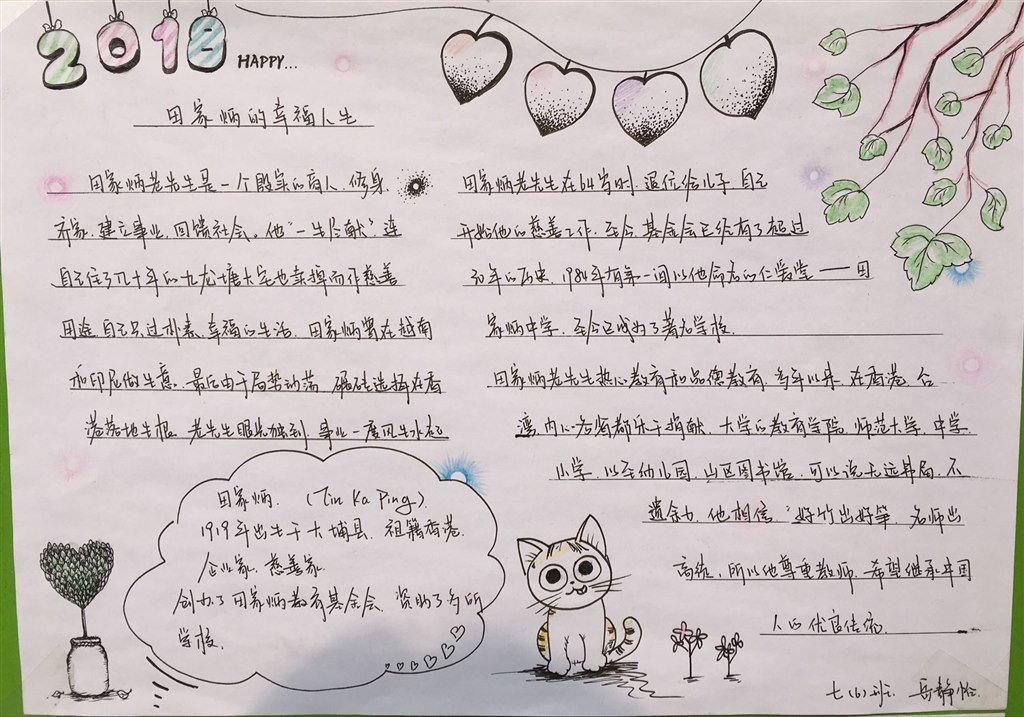 2018 HAPPY...
田家炳的幸福人生
田家炳老先生是一个殷实的商人.修身
齐家.建立事业.回馈社会。他"一生尽献"连
自己住了几十年的九龙塘大宅也卖掉而作慈善
用途.自己只过朴素.幸福的生活.田家炳曾在越南
和印尼做生意.最后由于局势动荡 辗转选择在香
港落地生根.老先生眼光独到.事业一度风生水起
田家炳.(Tin Ka Ping).
1919年出生于大埔县.祖籍香港.
企业家.慈善家.
创办了田家炳教育基金会.资助了多所
学校.
田家炳老先生在64岁时.退位给儿子.自己
开始他的慈善工作.至今.基金会已经有了超过
30年的历史.1984年有第一间以他命名的仁学堂——田
家炳中学.至今已成为了著名学校.
田家炳老先生热心教育和品德教育.多年以来.在香港.台
湾.内心各省都乐于捐献.大学的教育学院.师范大学.中学.
小学.以至幼儿园.山区图书馆.可以说无远弗届.不
遗余力.他相信"好竹出好笋.名师出
高徒.所以他尊重教师.希望继承中国
人的优良传统.
七(6)班.岳静怡.